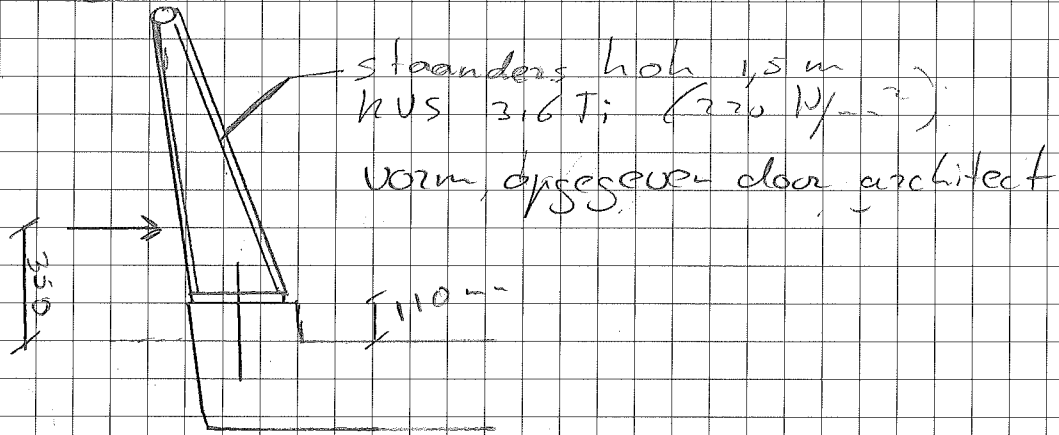 staanders hoh 1,5 m
RVS 316 Ti (220 N/mm²)
vorm opgegeven door architect
350
110 mm